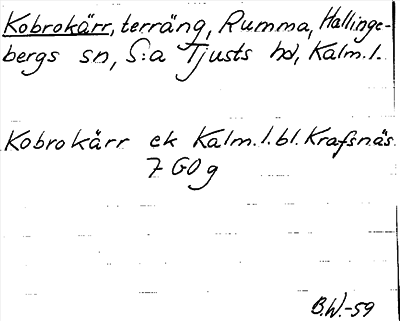 Kobrokärr, terräng, Rumma, Hallinge-
bergs sn, S:a Tjusts hd, Kalm. l.
Kobrokärr ek Kalm. l. bl. Krafsnäs
7 GO g
B.W.-59